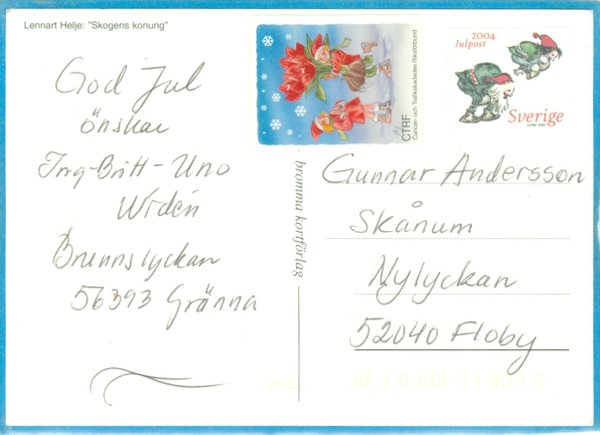 Lennart Helje: "Skogens konung"
God Jul
önskar
Ing-Britt-Uno
Widén
Brunnslyckan
56393 Gränna
CTRF
Cancer- och Trafikskadades Riksförbund
2004
Julpost
Sverige
bromma kortförlag
Gunnar Andersson
Skånum
Nylyckan
52040 Floby